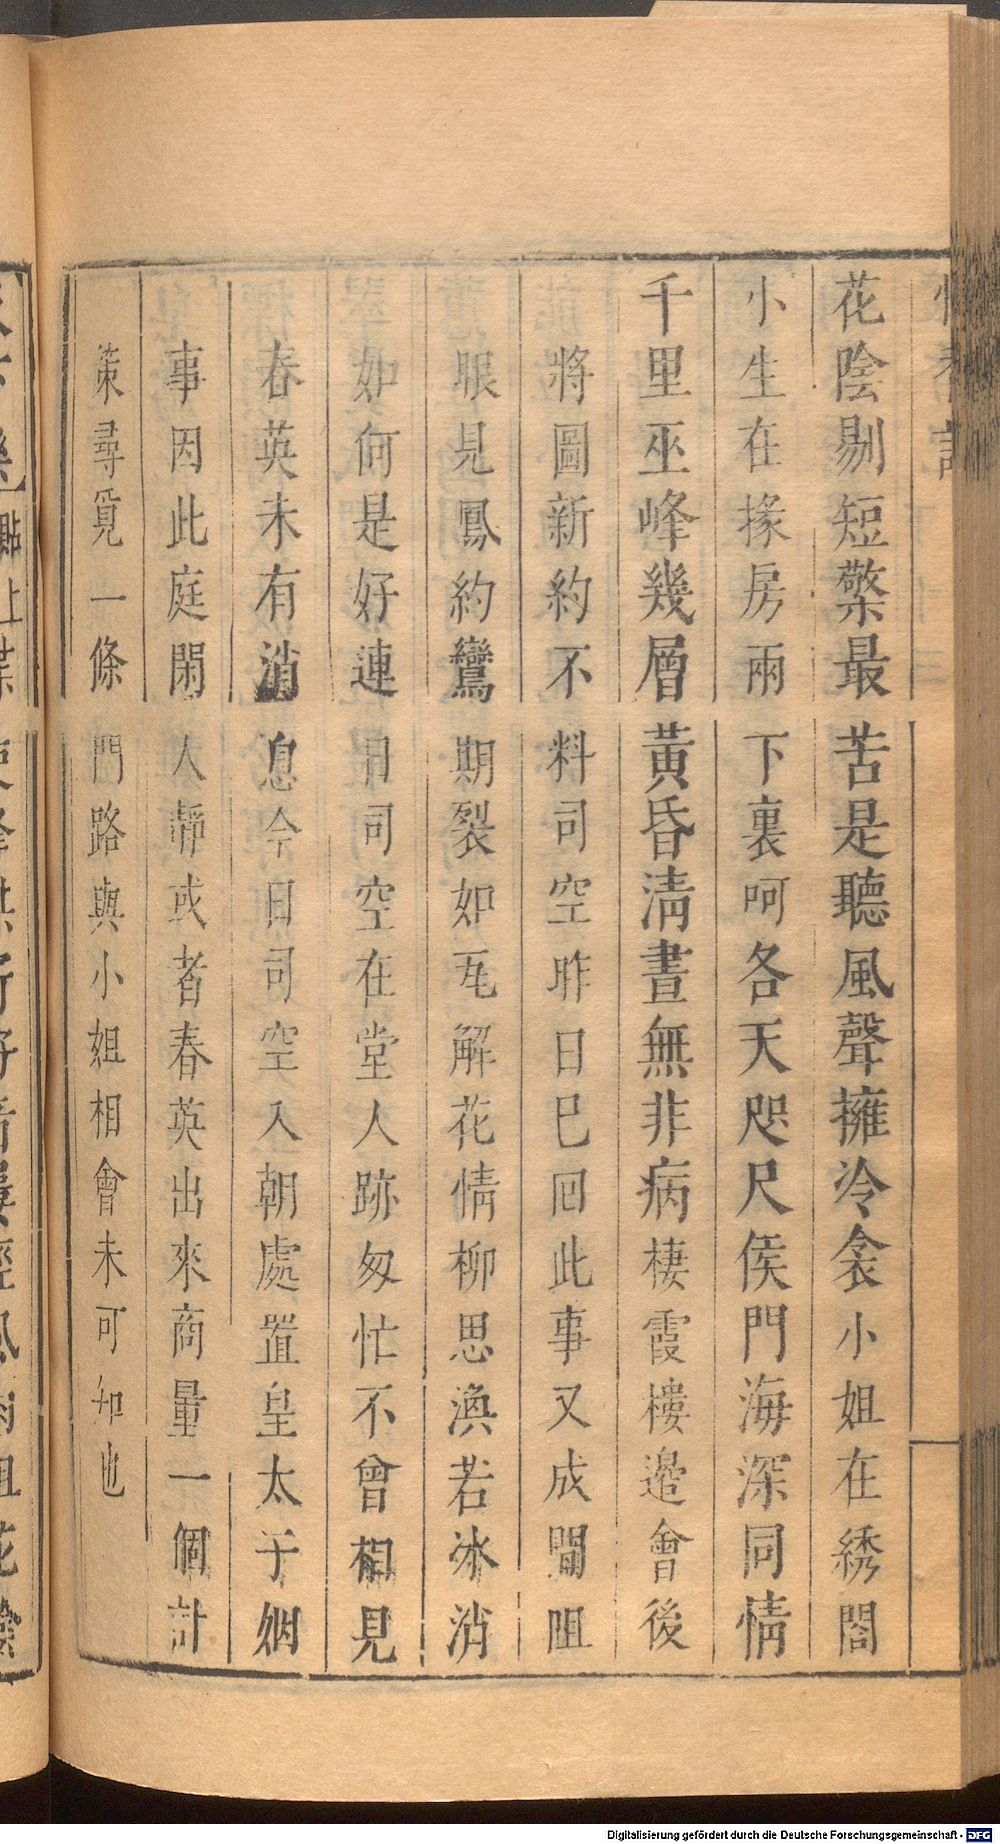 花陰剔短檠最苦是聽風聲擁冷衾小姐在綉閣
小生在掾房兩下裏呵各天咫尺侯門海深同情
千里巫峰幾層黃昏清晝無非病棲霞樓邉會後
將圖新約不料司空昨日已囘此事又成間阻
眼見鳳約鸞期裂如瓦解花情柳思渙若冰消
如何是好連日司空在堂人跡匆忙不曾相見
春英未有消息今日司空入朝處置皇太子姻
事因此庭閑人靜或者春英出來商量一個計
策尋覓一條門路與小姐相會未可知也
Digitalisierung gefördert durch die Deutsche Forschungsgemeinschaft - DFG